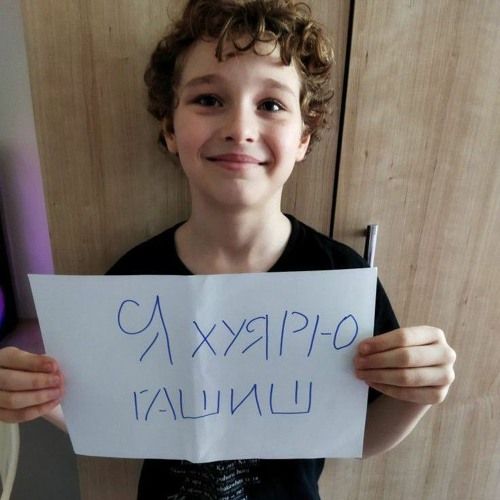 Я ХУЯРЮ
ГАШИШ